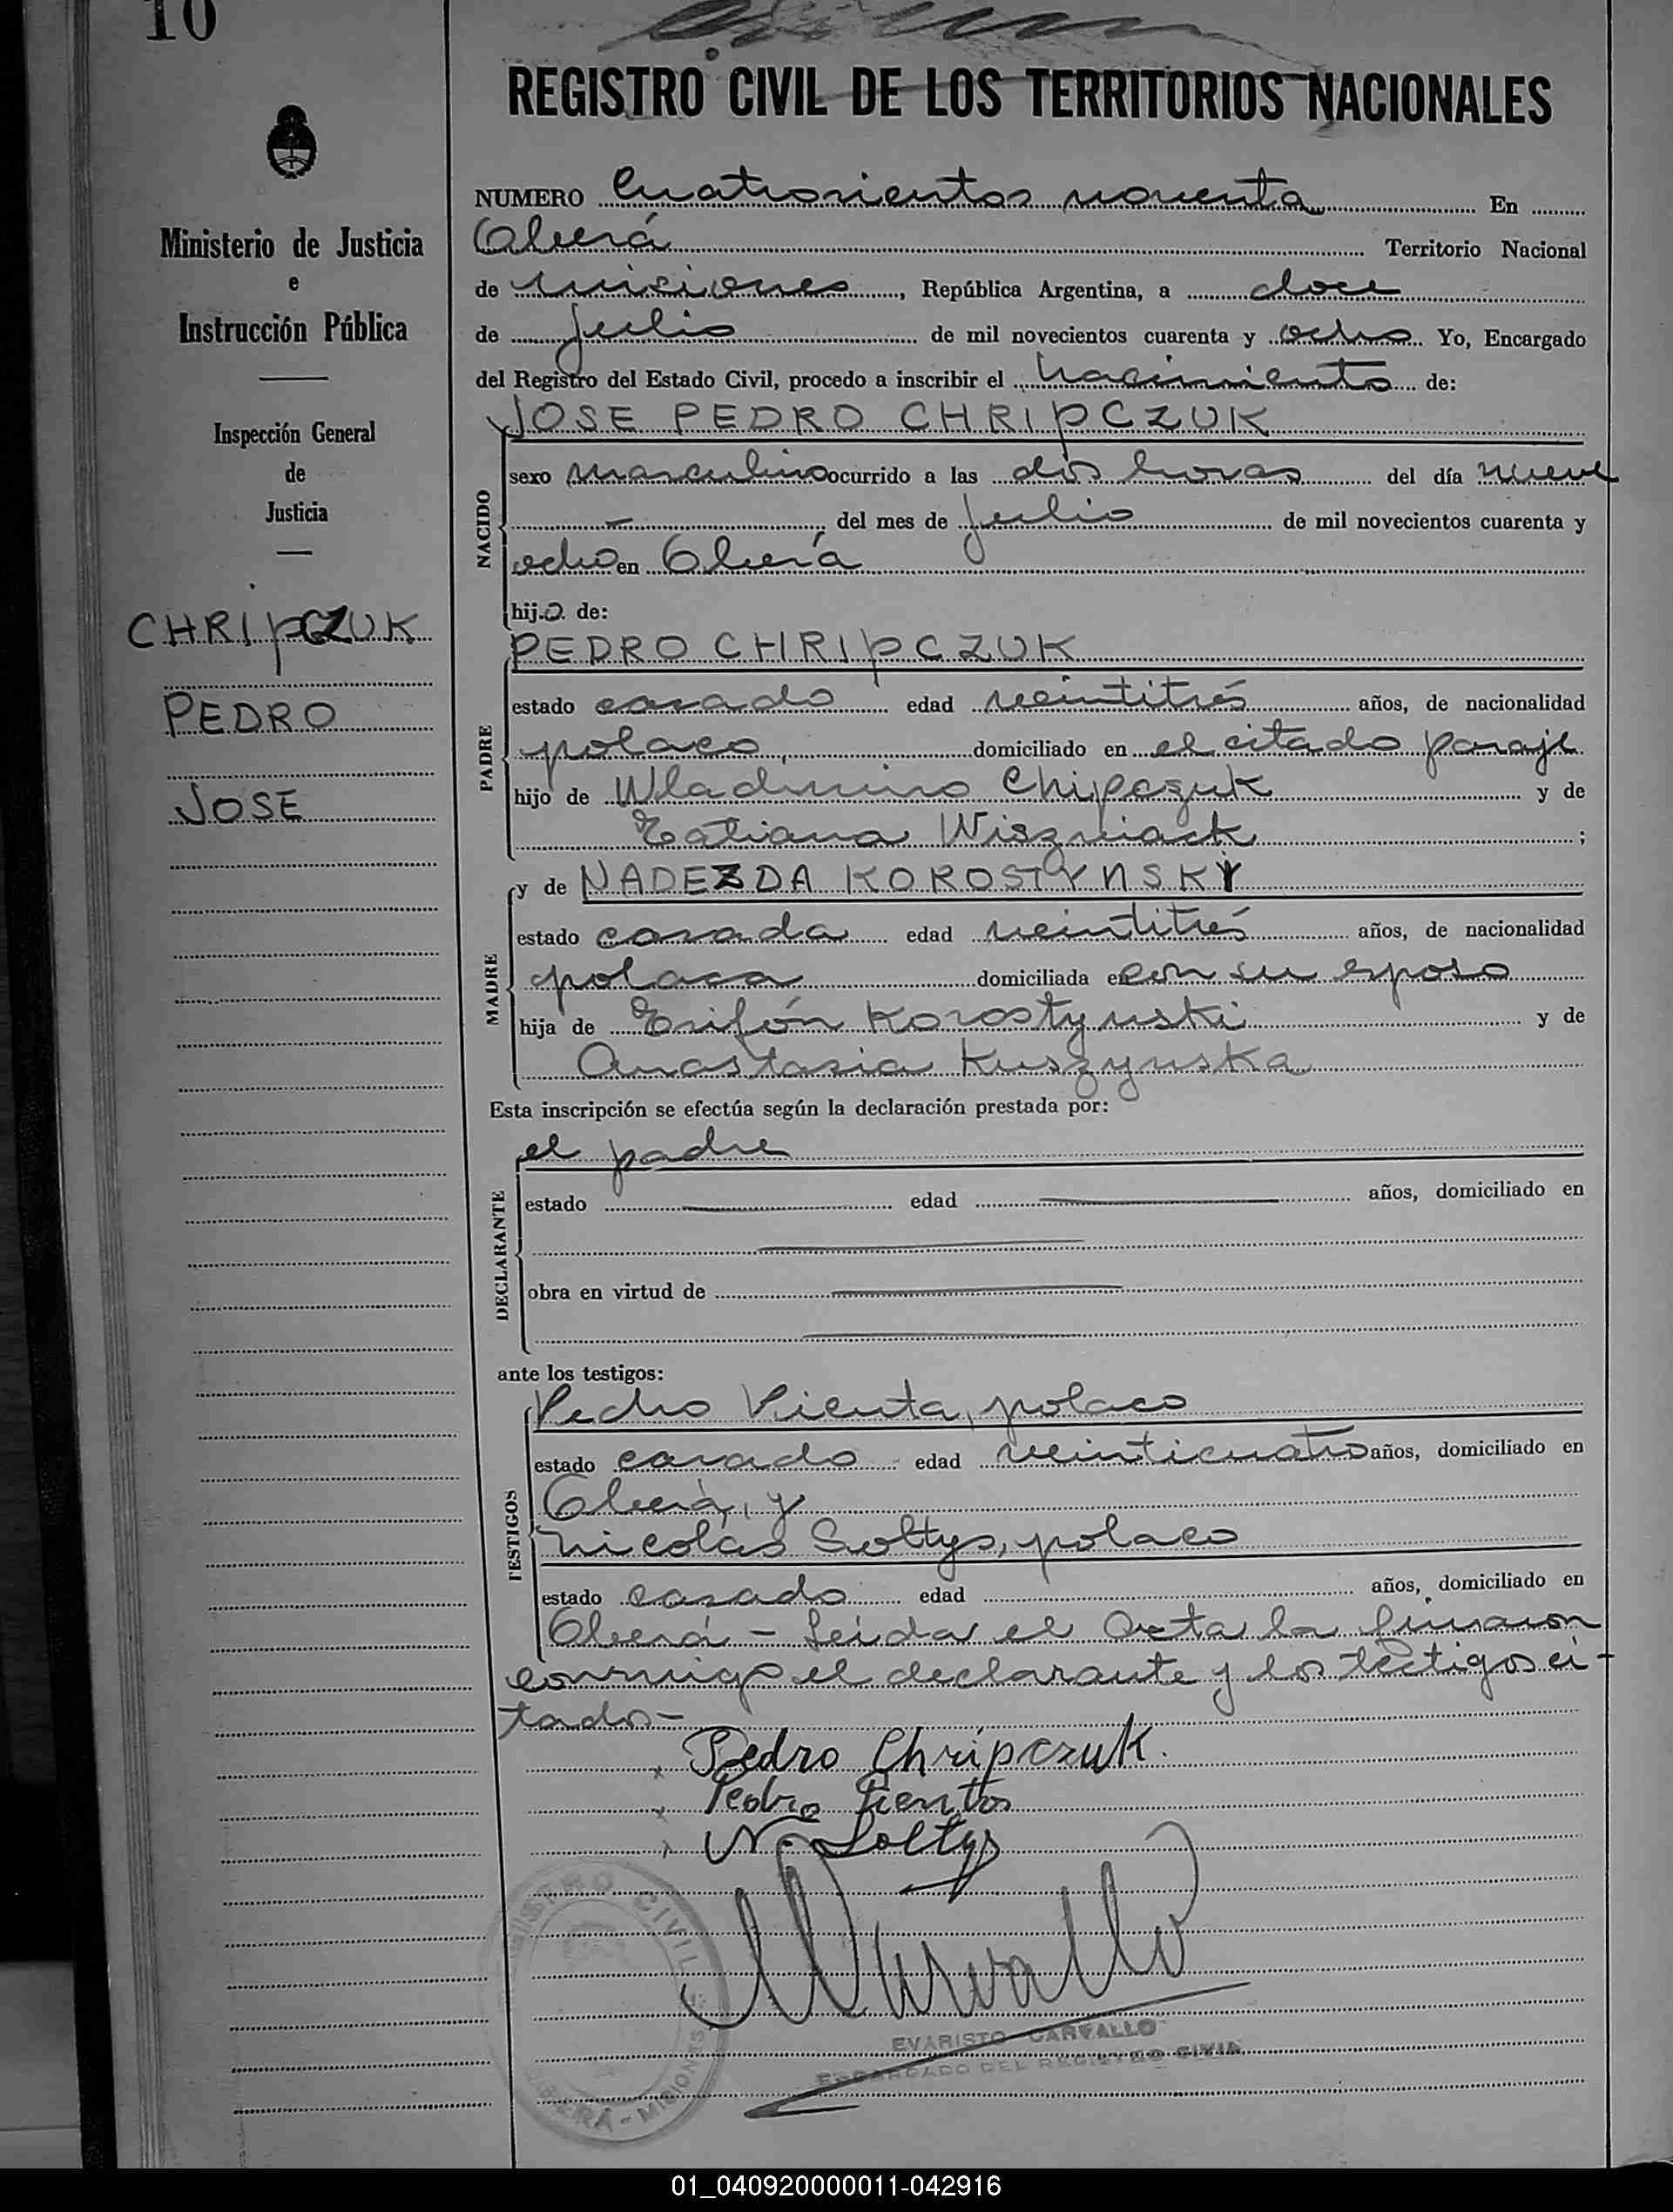 10
REGISTRO CIVIL DE LOS TERRITORIOS NACIONALES
Ministerio de Justicia
e
Instrucción Pública
Inspección General
de
Justicia
CHRIPCZUK
PEDRO
JOSE
NUMERO Cuatrocientos noventa En
Oberá Territorio Nacional
de Misiones, República Argentina, a doce
de Julio de mil novecientos cuarenta y ocho Yo, Encargado
del Registro del Estado Civil, procedo a inscribir el nacimiento de:
JOSE PEDRO CHRIPCZUK
NACIDO
sexo masculino ocurrido a las dos horas del día nueve
- del mes de Julio de mil novecientos cuarenta y
ocho en Oberá
hijo de:
PEDRO CHRIPCZUK
PADRE
estado casado edad veintitrés años, de nacionalidad
polaco, domiciliado en el citado paraje
hijo de Wladimiro Chipczuk y de
Tatiana Wiszniack ;
y de NADEZDA KOROSTYNSKY
MADRE
estado casada edad veintitrés años, de nacionalidad
polaca domiciliada en con su esposo
hija de Trifón Korostynski y de
Anastasia Kuszynska
Esta inscripción se efectúa según la declaración prestada por:
el padre
DECLARANTE
estado edad años, domiciliado en
obra en virtud de
ante los testigos:
TESTIGOS
Pedro Pienta, polaco
estado casado edad veinticuatro años, domiciliado en
Oberá, y
Nicolás Soltys, polaco
estado casado edad años, domiciliado en
Oberá - Leída el Acta la firmaron
conmigo el declarante y los testigos ci-
tados-
Pedro Chripczuk.
Pedro
N. Soltys
EVARISTO CARVALLO
ENCARGADO DEL REGISTRO CIVIL
REGISTRO CIVIL
OBERÁ - MISIONES
01_040920000011-042916